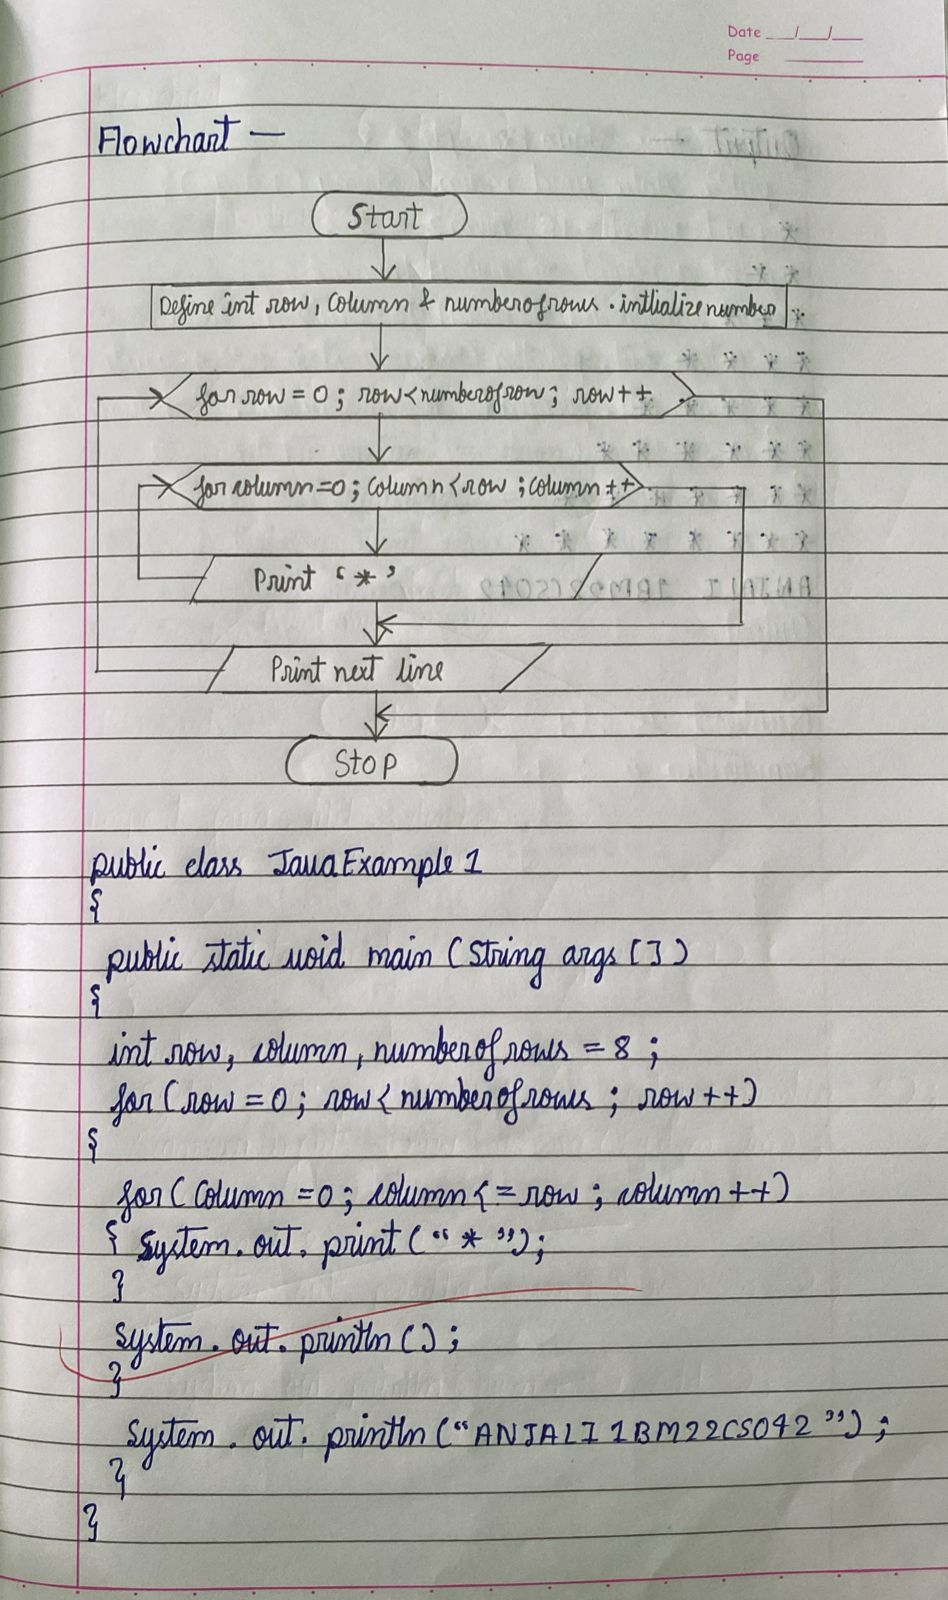 Date __/__/__
Page ______
Flowchart —
Start
Define int row, column & numberofrows . intlialize number
for row = 0 ; row < numberofrow ; row + +
for column = 0 ; column < row ; column + +
Print ‘ * ’
Print next line
Stop
public class JavaExample 1
{
public static void main ( String args [ ] )
{
int row, column , numberofrows = 8 ;
for ( row = 0 ; row < numberofrows ; row + + )
{
for ( column = 0 ; column < = row ; column + + )
{ System . out . print ( “ * ” ) ;
}
System . out . println ( ) ;
}
System . out . println ( “ ANJALI 1BM22CS042 ” ) ;
}
}